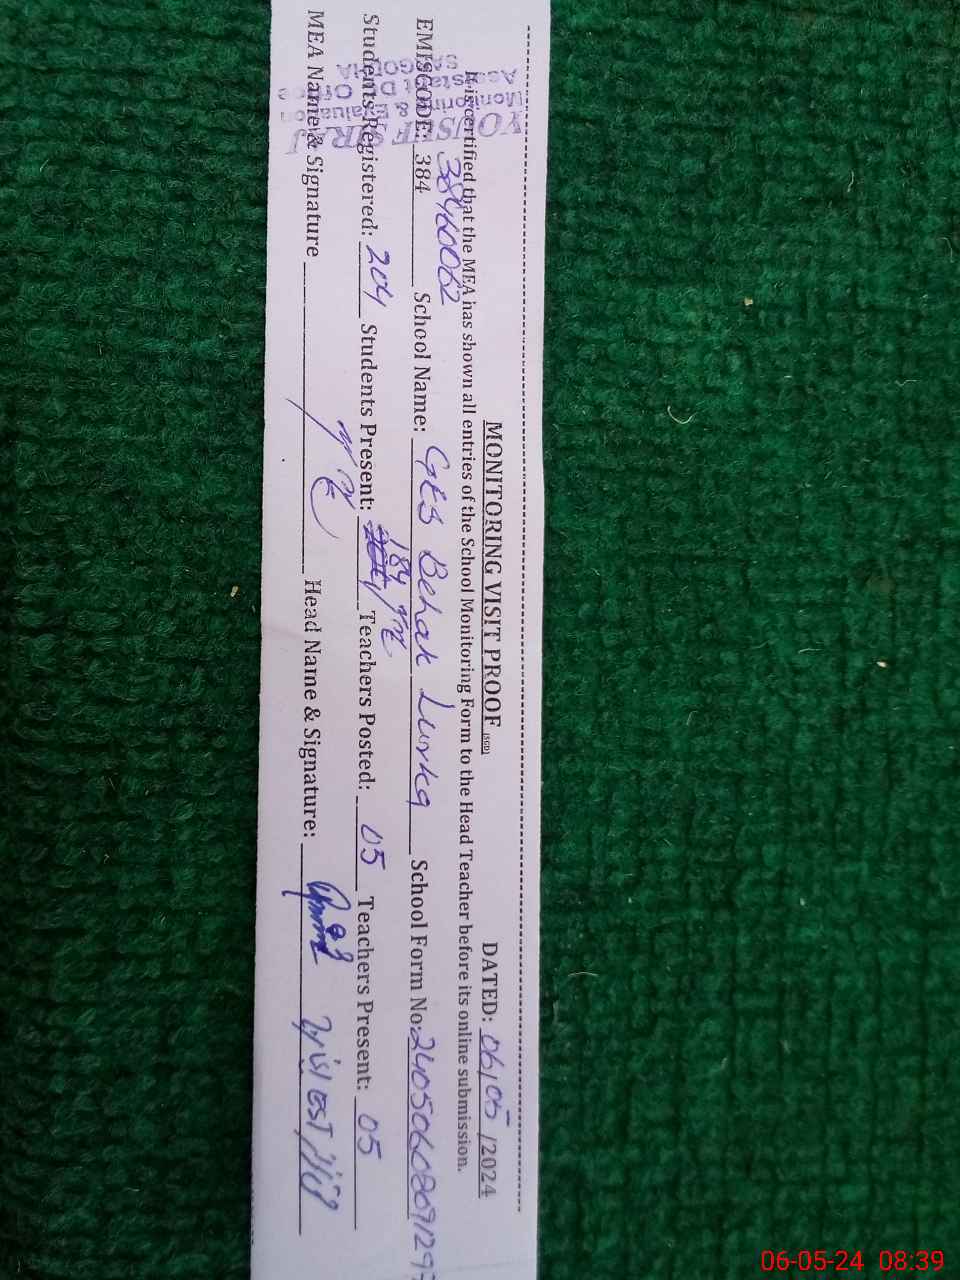 MONITORING VISIT PROOF (SGD) DATED: 06/05/2024
It is certified that the MEA has shown all entries of the School Monitoring Form to the Head Teacher before its online submission.
38460062
EMISCODE: 384 School Name: GES Behak Lurka School Form No: 2405060809129
Students Registered: 204 Students Present: 184 Teachers Posted: 05 Teachers Present: 05
MEA Name & Signature Head Name & Signature:
YOUSUF
Monitoring & Evaluation
Assistant
06-05-24 08:39